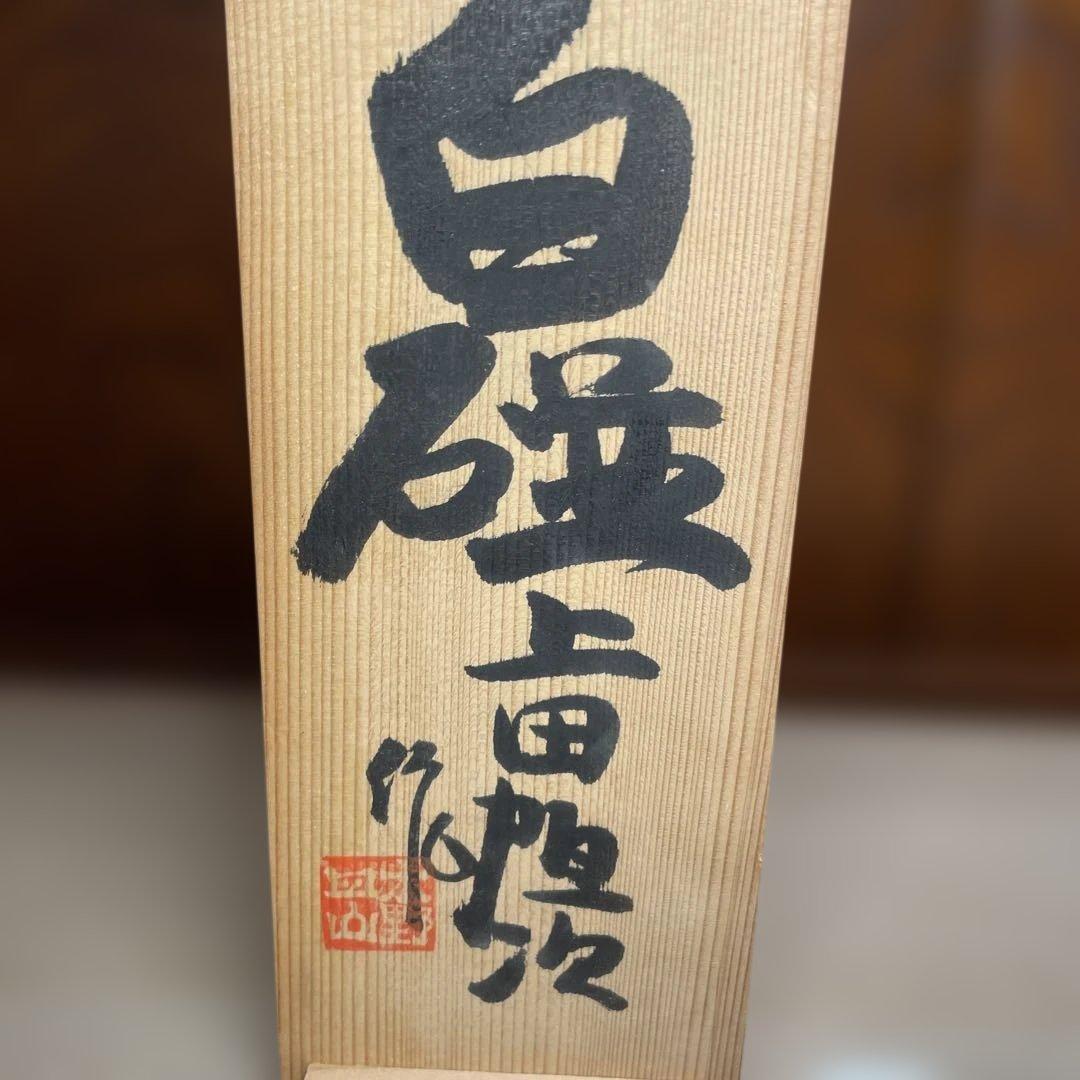 白磁
上田恒次
作